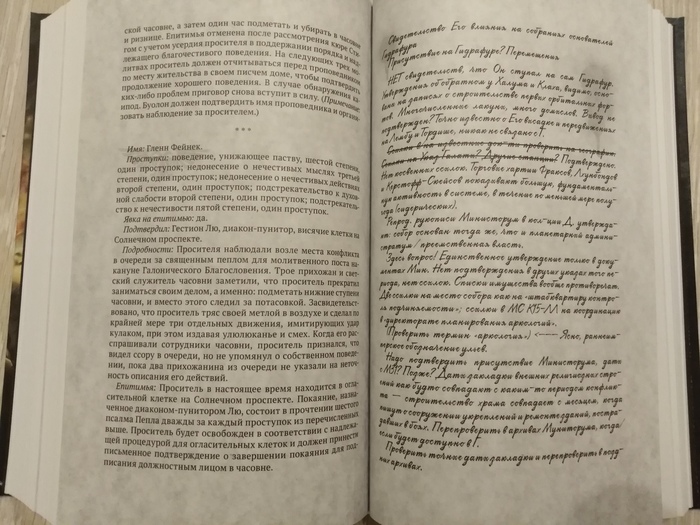 ской часовне, а затем один час подметать и убирать в часовне
и ризнице. Епитимья отменена после рассмотрения кюре Сте-
том с учетом усердия просителя в поддержании порядка и над-
лежащего благочестивого поведения. На следующих трех мо-
литвах проситель должен отчитываться перед проповедником
по месту жительства в своем писчем доме, чтобы подтвердить
продолжение хорошего поведения. В случае обнаружения ка-
ких-либо проблем приговор снова вступит в силу. (Примечание:
Буолон должен подтвердить имя проповедника и организо-
вать наблюдение за просителем.)
* * *
Имя: Гленн Фейнек.
Проступки: поведение, унижающее паству, шестой степени,
один проступок; недонесение о нечестивых мыслях третьей
степени, один проступок; недонесение о нечестивых действиях
второй степени, один проступок; подстрекательство к духов-
ной слабости второй степени, один проступок; подстрекатель-
ство к нечестивости пятой степени, один проступок.
Явка на епитимью: да.
Подтвердил: Гестион Лю, диакон-пунитор, висячие клетки на
Солнечном проспекте.
Подробности: Просителя наблюдали возле места конфликта
в очереди за священным пеплом для молитвенного поста на-
кануне Галонического Благословения. Трое прихожан и свет-
ский служитель часовни заметили, что проситель прекратил
заниматься своим делом, а именно: подметать нижние ступени
часовни, и вместо этого следил за потасовкой. Засвидетельст-
вовано, что проситель тряс своей метлой в воздухе и сделал по
крайней мере три отдельных движения, имитирующих удар
кулаком, при этом издавая улюлюканье и смех. Когда его рас-
спрашивали сотрудники часовни, проситель признался, что
видел ссору в очереди, но не упомянул о собственном поведе-
нии, пока два прихожанина из очереди не указали на неточ-
ность описания его действий.
Епитимья: Проситель в настоящее время находится в огла-
сительной клетке на Солнечном проспекте. Покаяние, назна-
ченное диаконом-пунитором Лю, состоит в прочтении шестого
псалма Пепла дважды за каждый проступок из перечисленных
выше. Проситель будет освобожден в соответствии с надлежа-
щей процедурой для огласительных клеток и должен принести
письменное подтверждение о завершении покаяния для под-
писания должностным лицом в часовне.
Свидетельство Его влияния на собраниях основателей
Гидрафура
Присутствие на Гидрафуре? Перемещения
НЕТ свидетельств, что Он ступал на сам Гидрафур.
Утверждения об обратном у Халума и Клаха, видимо, осно-
ваны на записях о строительстве первых орбитальных фор-
тов. Многочисленные лакуны, много домыслов. Вывод не
подтвержден? Точно известно о Его высадке и передвижениях
на и Гордише, никак не связано с Г.
Подтверждено.
Нет косвенных ссылок. Торговые хартии
и показывают большую, фундаменталь-
ную активность в системе, в течение по меньшей мере полу-
года (сидерических).
Репрод. рукописи Министорум в кол-ции Д. утвержда-
ют: собор основан тогда же, что и планетарный админи-
стратум / преемственная власть.
Здесь вопрос! Единственное утверждение только в доку-
ментах Мин. Нет подтверждений в других указах того пе-
риода, нет ссылок. Списки имущества вообще противоречат.
Две ссылки на место собора как на «штаб-квартиру контро-
ля подчиняемости»; ссылки в МС КТ5-ЛЛ на координацию
в «директорате планирования аркологий».
Проверить термин «аркологии» <—— Ясно, раннеимпер-
ское обозначение ульев.
Надо подтвердить присутствие Министорума, дата
с М31? Позже? Даты закладки внешних религиозных стро-
ений как будто совпадают с каким-то периодом конфлик-
та — строительство храма совпадает с месяцем, когда
пишут о сооружении укреплений и ремонте зданий, постра-
давших в боях. Перепроверить в архивах Муниторума, когда
если будет доступно в Г.
Проверить точные даты закладки и перепроверить в позд-
них архивах.